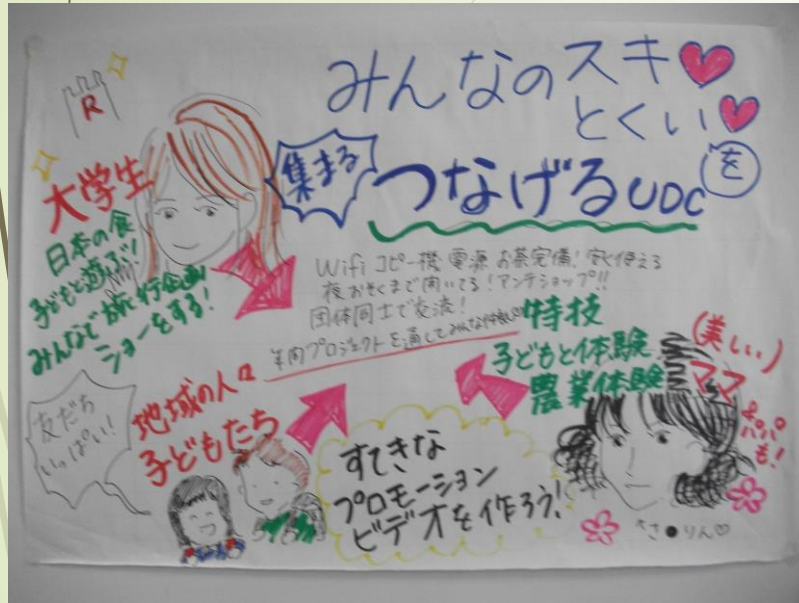 みんなのスキ♥
とくい♥
を
つなげるUDC
集まる
R
大学生
日本の食
子どもと遊ぶ!
みんなで旅行企画
ショーをする!
Wifi コピー機 電源 お茶完備! 安く使える
夜おそくまで開いてる! アンテショップ!!
団体同士で交流!
年内プロジェクトを通してみんな仲良し
特技
子どもと体験
農業体験
(美しい)
ママ
パパ
も!
地域の人々
子どもたち
友だち
いっぱい!
すてきな
プロモーション
ビデオを作ろう!